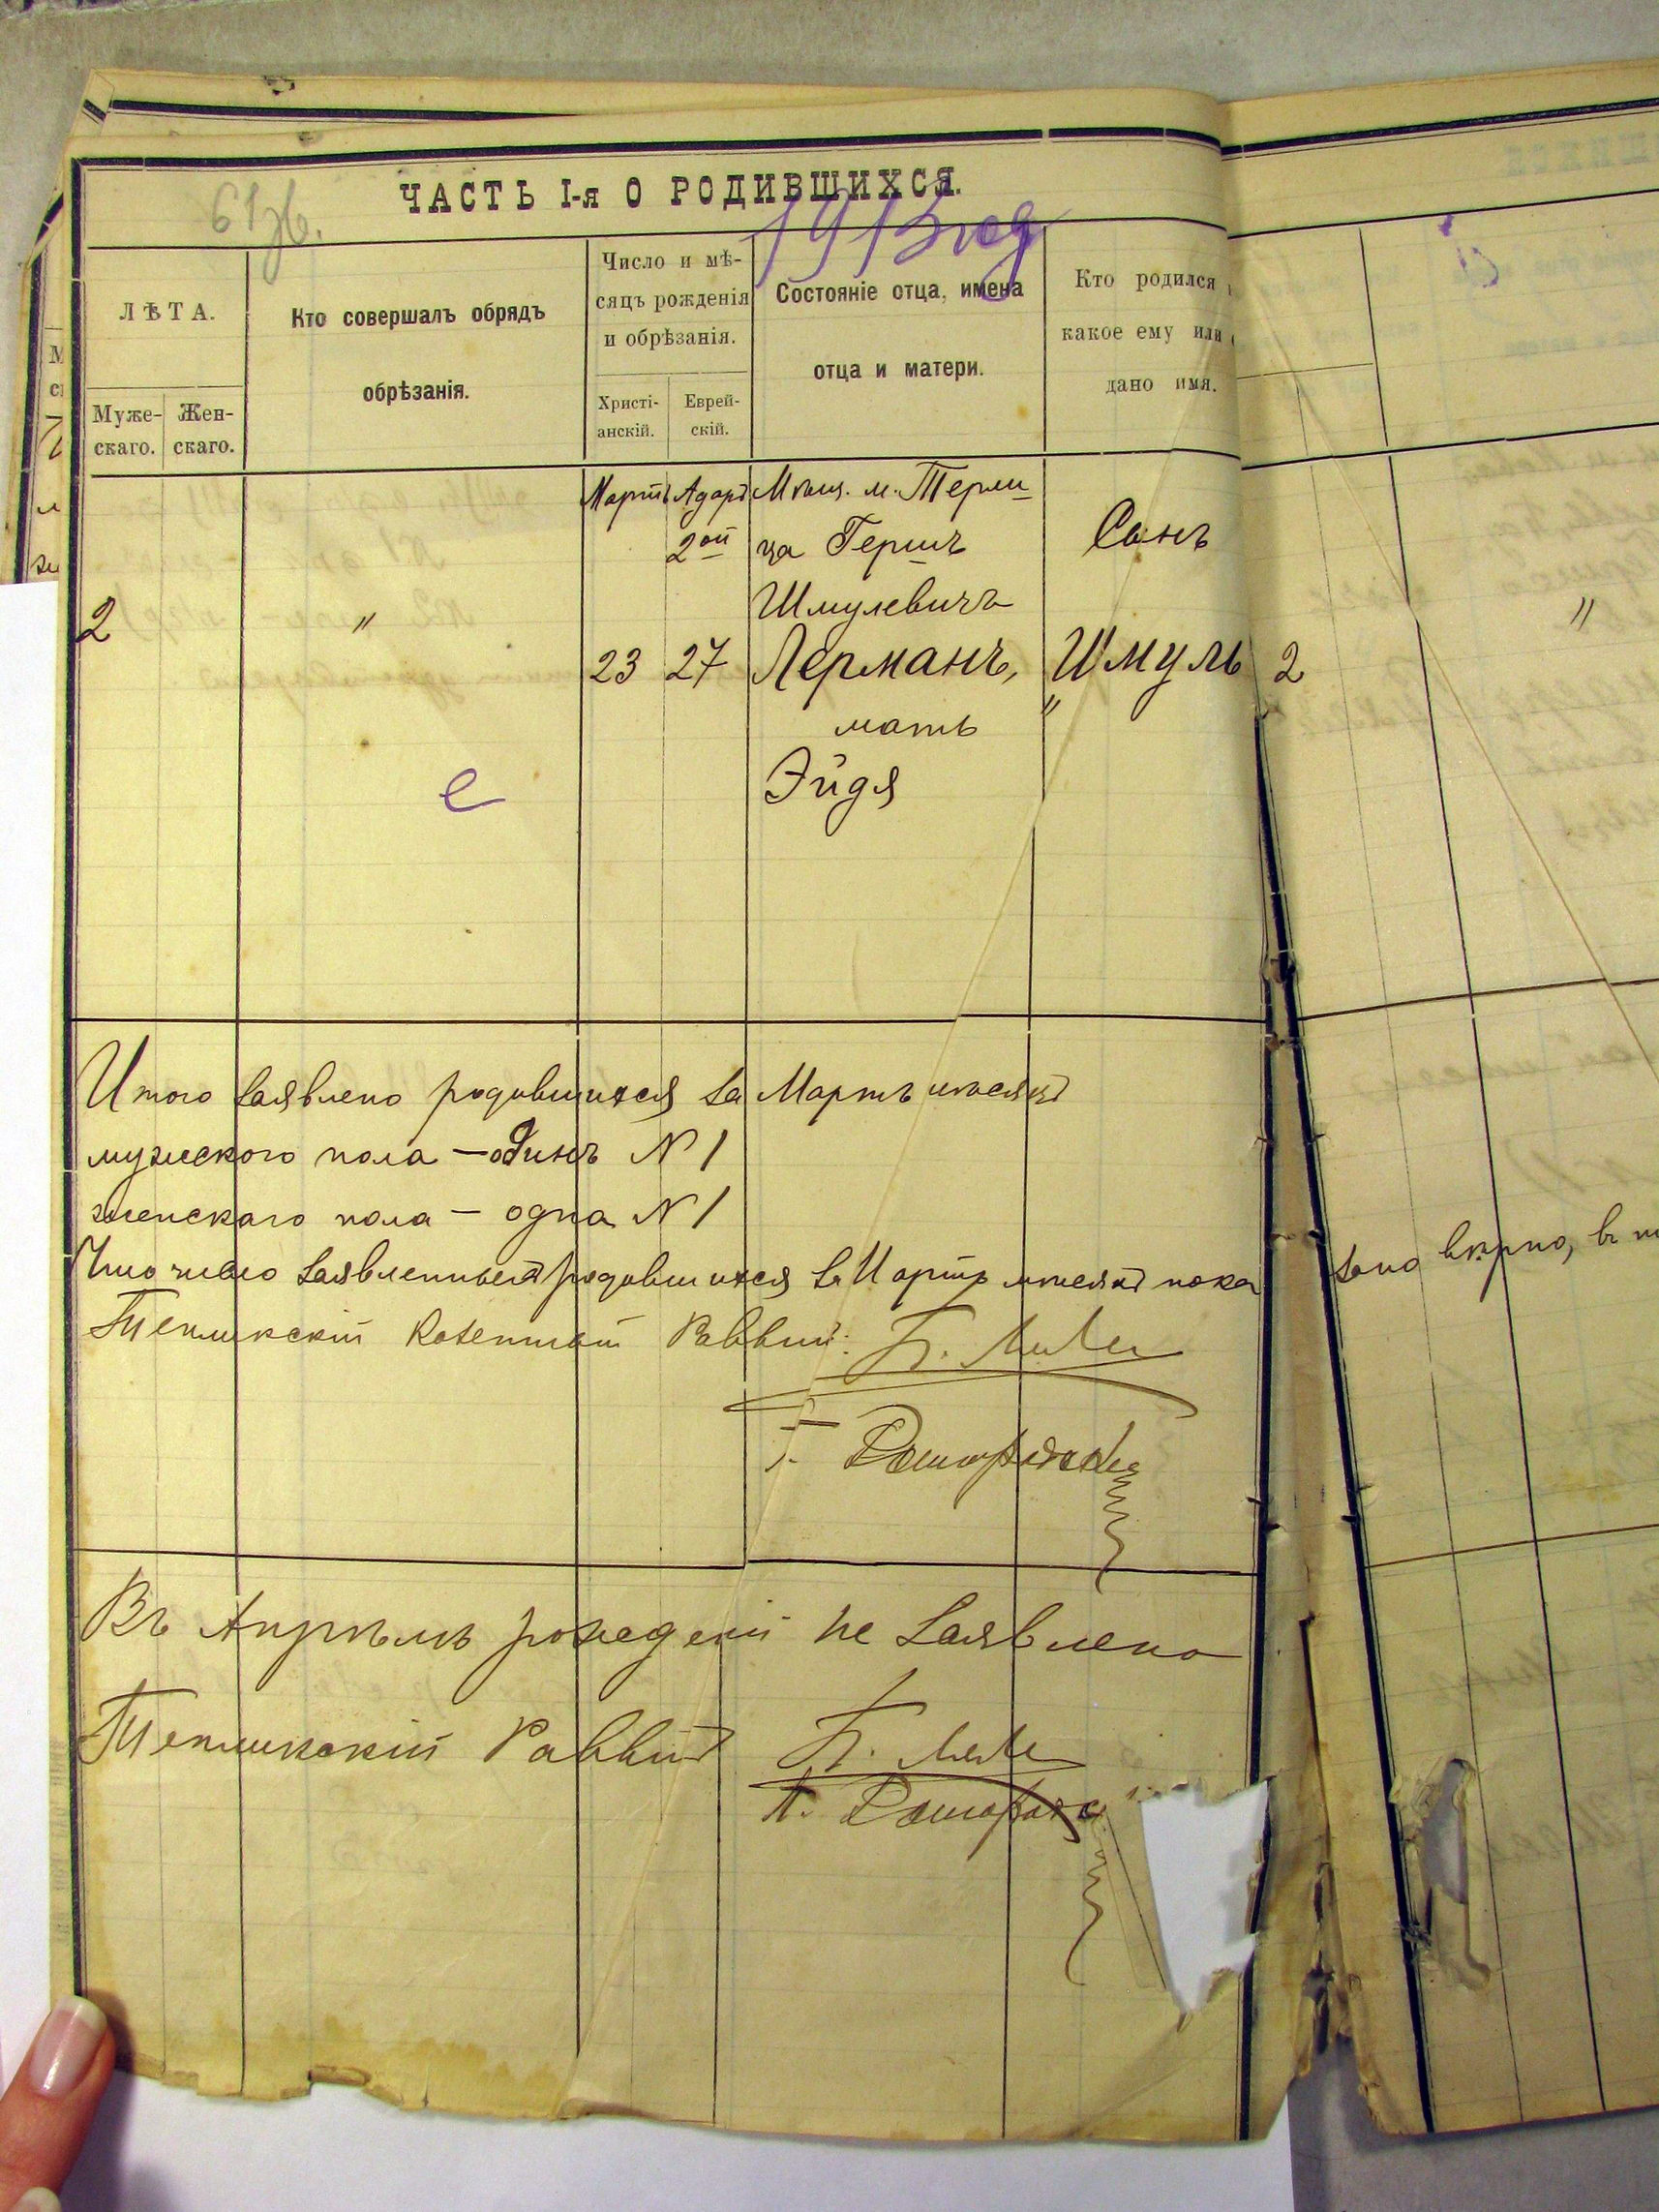 ЧАСТЬ I-я О РОДИВШИХСЯ.
61 зв.
1913 год
ЛѢТА.
Муже-
скаго.
Жен-
скаго.
Кто совершалъ обрядъ
обрѣзанія.
Число и мѣ-
сяцъ рожденія
и обрѣзанія.
Христі-
анскій.
Еврей-
скій.
Состояніе отца, имена
отца и матери.
Кто родился
какое ему или
дано имя.
Мартъ Адаръ Мѣщ. м. Терли-
2ой ца Гершъ Сынъ
Шмулевичъ
2 " 23 27 Лерманъ, Шмуль 2 "
мать "
Эйдя
е
Итого заявлено родившихся за Мартъ мѣсяцъ
мужского пола — одинъ N 1
женскаго пола — одна N 1
Что число заявленныхъ родившихся за Мартъ мѣсяцъ пока зано вѣрно, в
Тепликскій Казенный Раввинъ: Б.
Г.
Въ Апрѣлѣ рожденій не заявлено
Тепликскій Раввинъ Б.